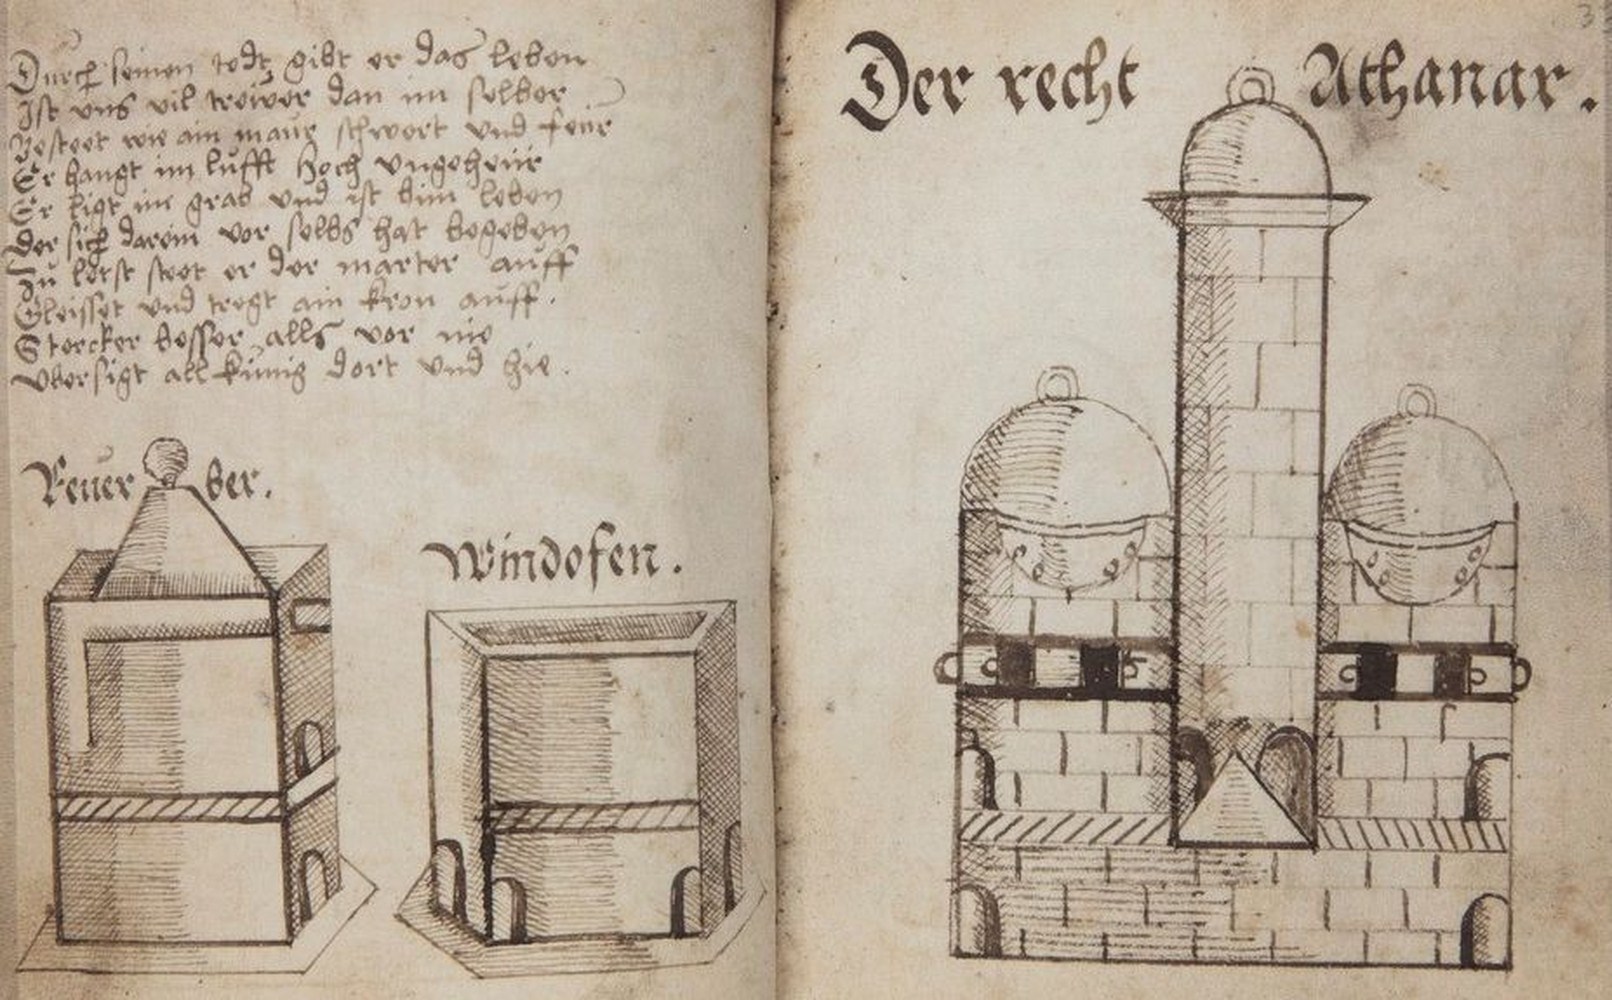 Durch seinen todt gibt er das leben
Ist uns vil trewer dan im selber
Besteet wie ain maur schwert und feur
Er hangt im lufft hoch ungeheür
Er ligt im grab und ist bim leben
Der sich darein vor selbs hat begeben
Zu letst steet er der marter auff
Gleisset und tregt ain kron auff.
Stercker besser alls vor nie
Ubersigt all künig dort und hie.
Feuer ber.
Windofen.
Der recht Athanar.
3